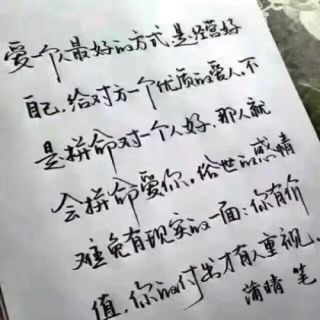 爱一个人最好的方式,是经营好
自己,给对方一个优质的爱人,不
是拼命对一个人好,那人就
会拼命爱你。俗世的感情
难免有现实的一面:你有价
值,你的付出才有人重视。
蒲晴 笔